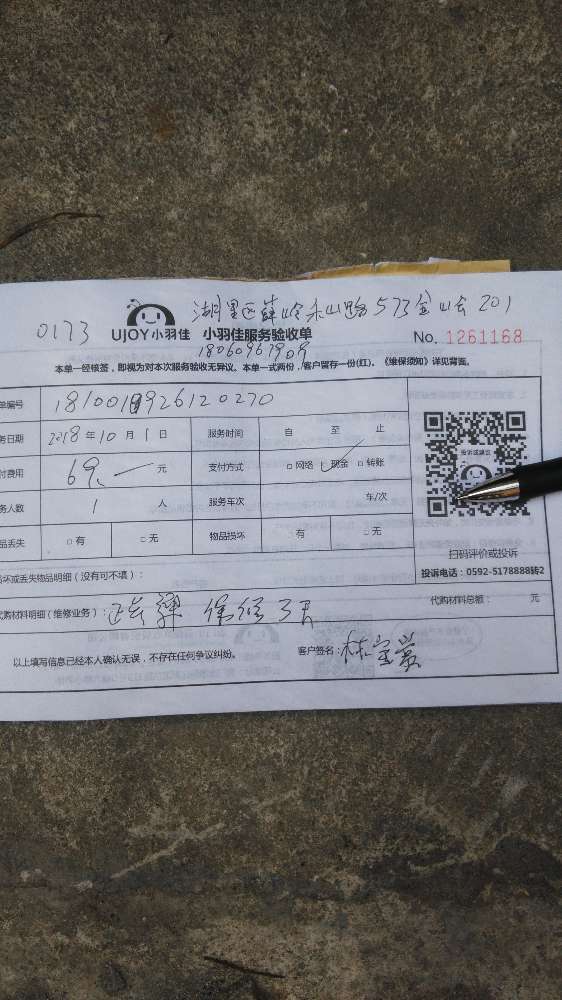 湖里区薛岭禾山路573金山公201
0173
UJOY小羽佳 小羽佳服务验收单
No. 1261168
18060967909
本单一经核签，即视为对本次服务验收无异议。本单一式两份，客户留存一份(红)。《维保须知》详见背面。
单编号 1810019926120270
务日期 2018年10月1日 服务时间 自 至 止
付费用 69. 元 支付方式 □网络 ✓现金 □转账
务人数 1 人 服务车次 车/次
品丢失 □有 □无 物品损坏 □有 □无
投诉或建议
扫码评价或投诉
投诉电话：0592-5178888转2
损坏或丢失物品明细（没有可不填）：
代购材料明细（维修业务）： 保修3天
代购材料总额： 元
以上填写信息已经本人确认无误，不存在任何争议纠纷。 客户签名：林宝